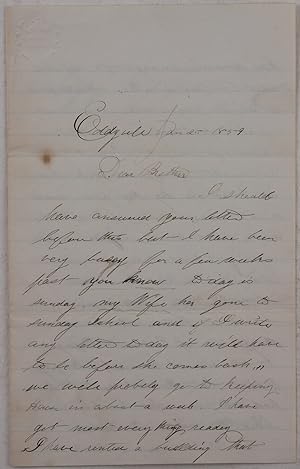 Eddyville Jan 25 1859
Dear Brother
I should
have answered your letter
before this but I have been
very busy for a few weeks
past you know Today is
sunday my Wife has gone to
sunday school and if I write
any letter today it will have
to be before she comes back,
we will probely go to keeping
House in about a week. I have
got most everything ready
I have rented a building that